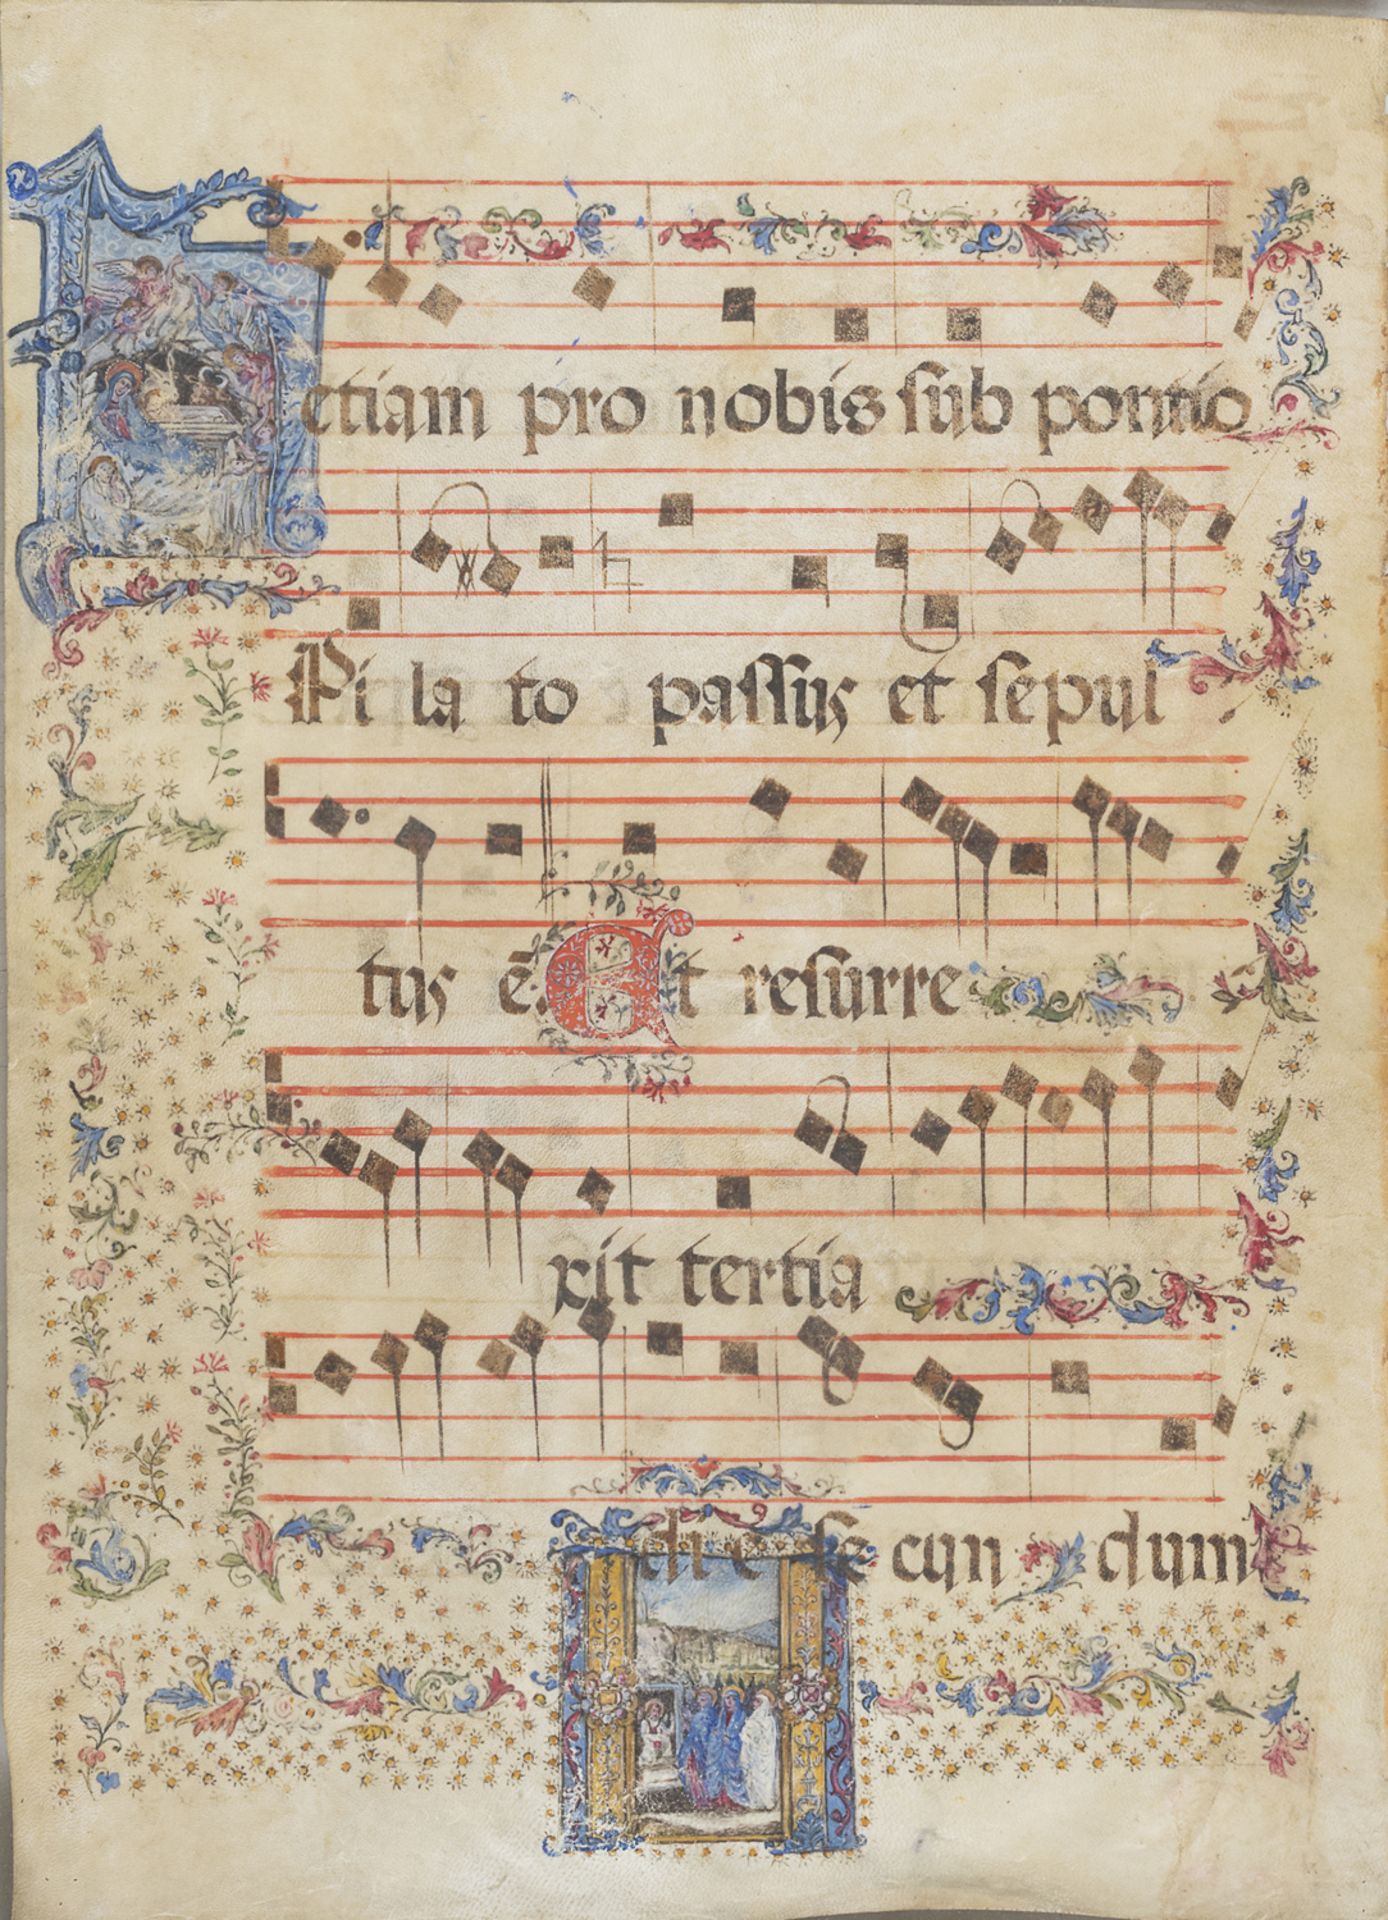 etiam pro nobis sub pontio
Pi la to passus et sepul
tus ē. Et resurre
xit tertia
di e se cun dum